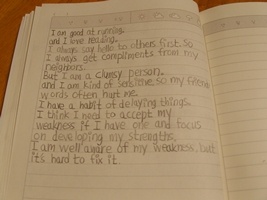 I am good at running.
and I love reading.
I always say hello to others first. So
I always get compliments from my
neighbors.
But I am a clumsy person.
and I am kind of sensitive. so my friend
words often hurt me.
I have a habit of delaying things.
I think I need to accept my
weakness if I have one and focus
on developing my strengths.
I am well aware of my weakness, but
it's hard to fix it